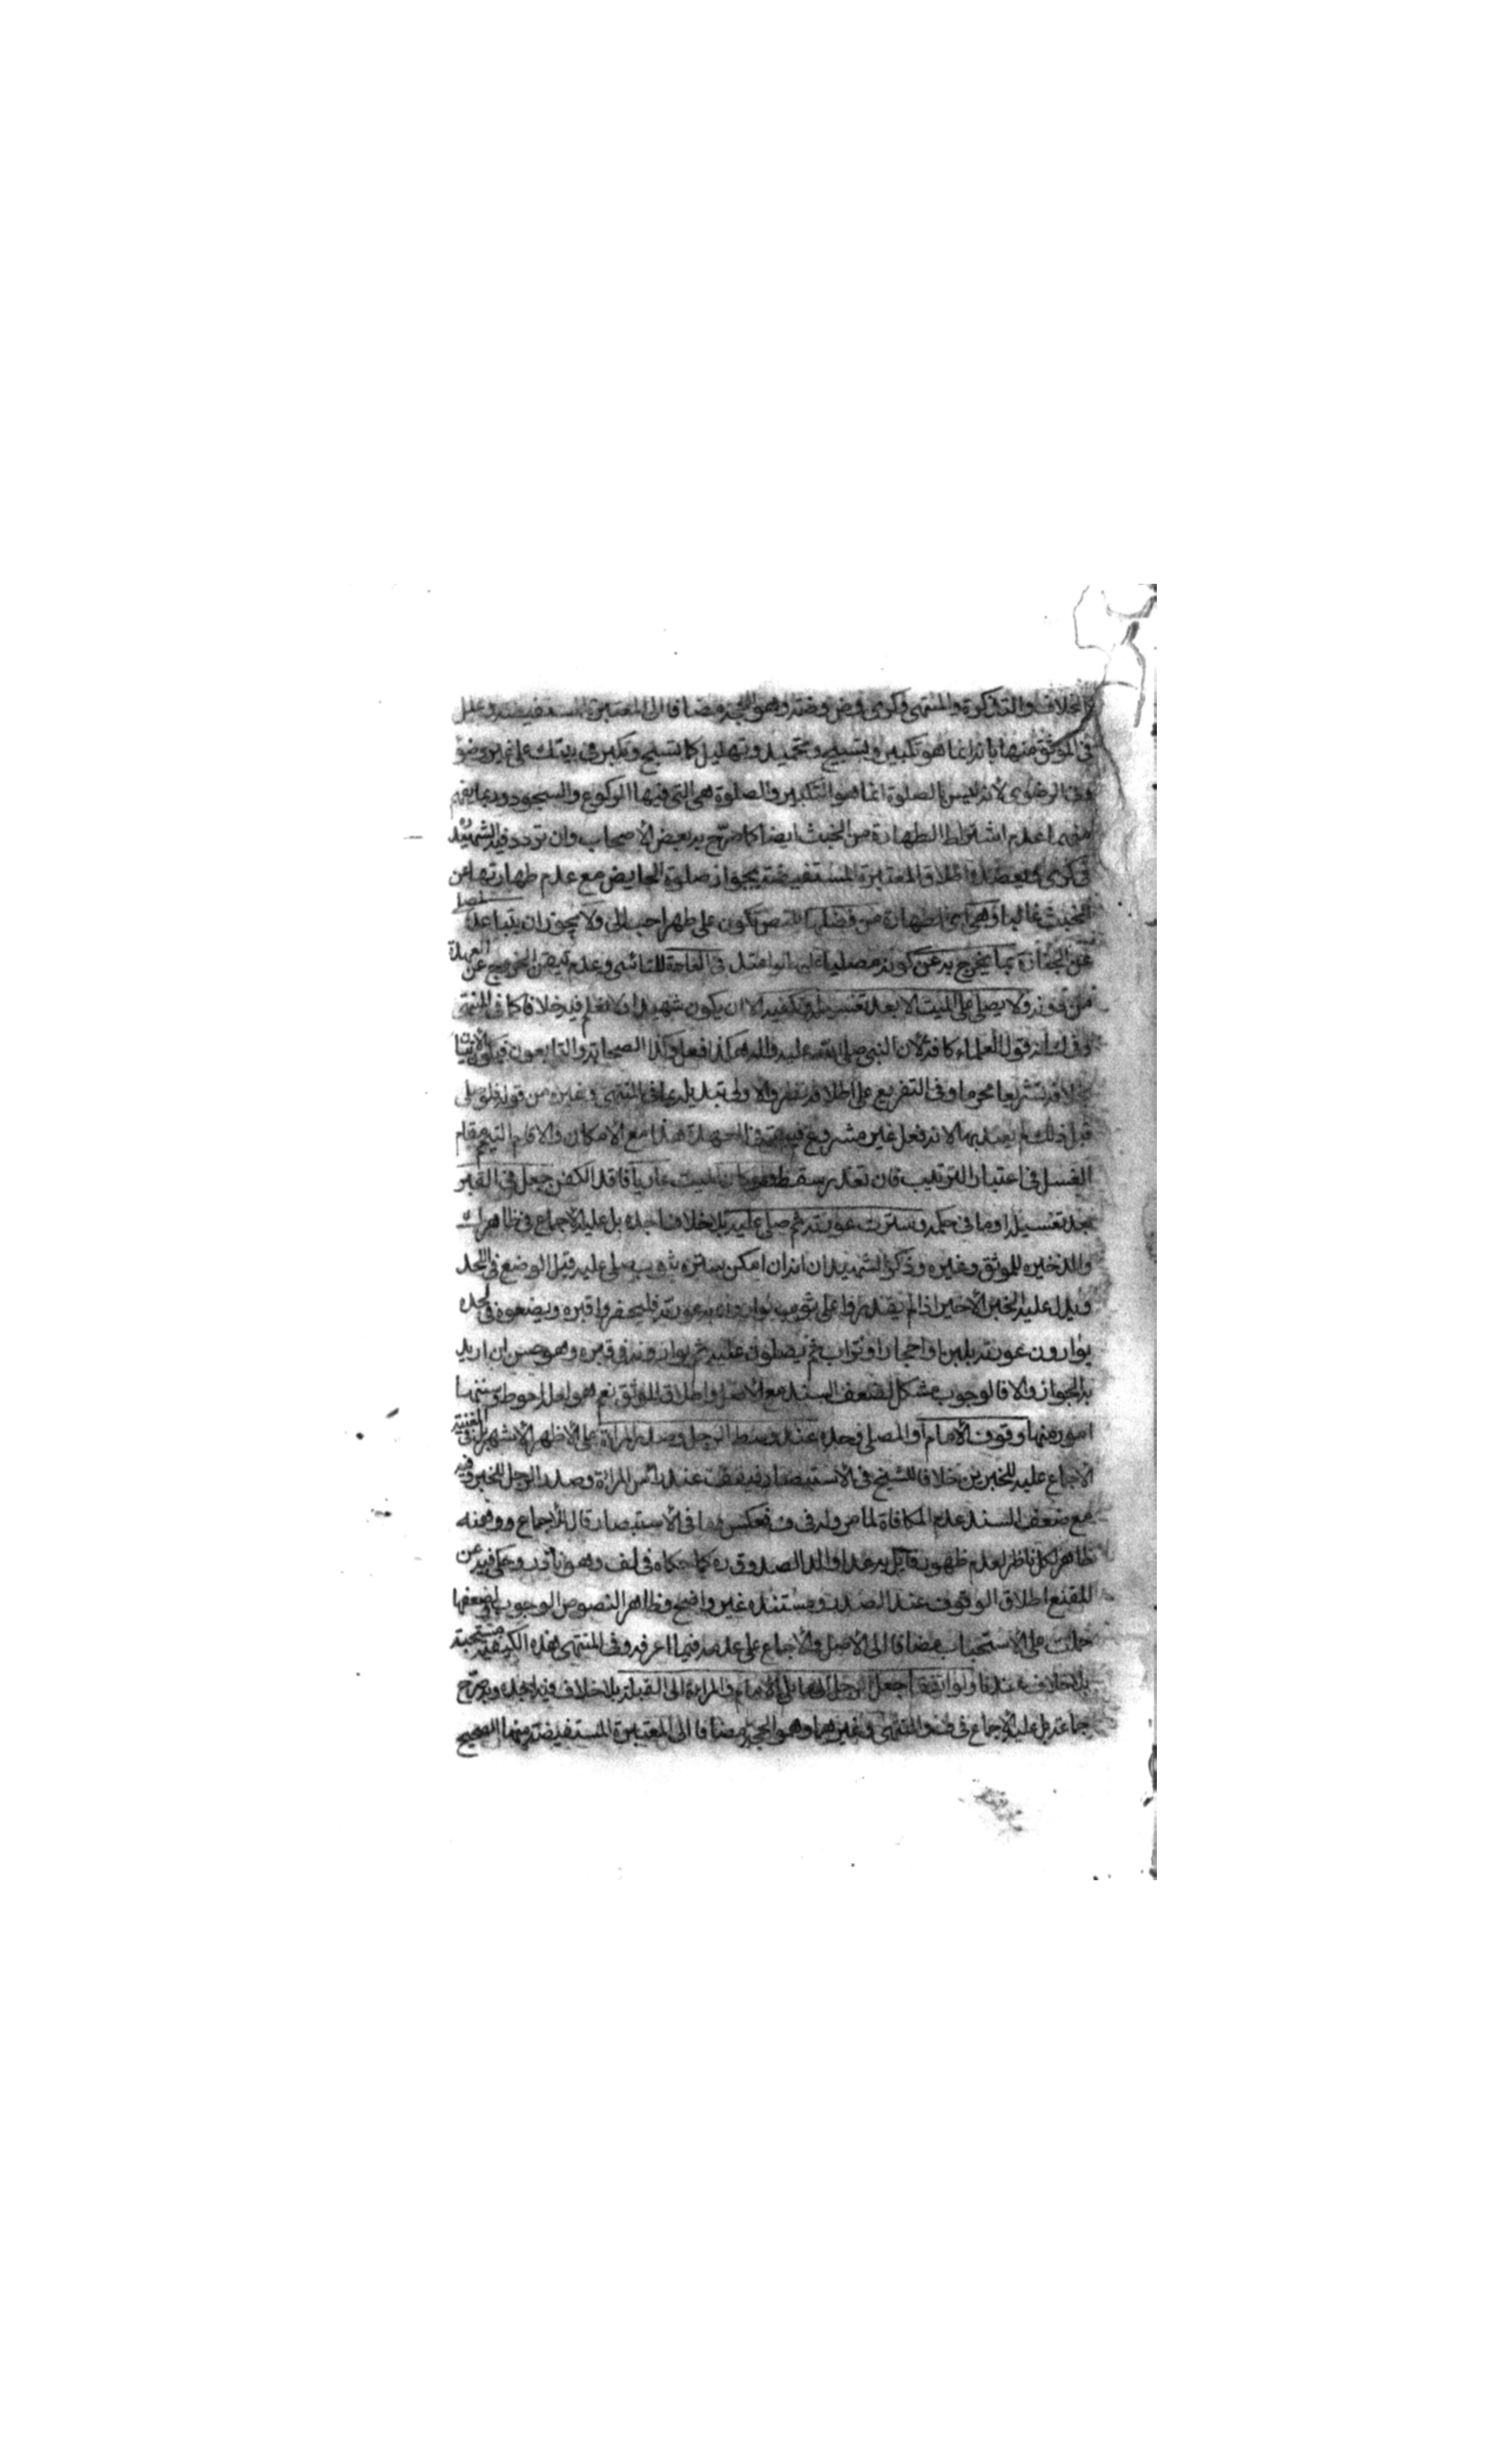 كالخلاف والتذكرة والمنتهى وكرى وض وضه وهو الحجة مضافا الى المعتبرة المستفيضة وعلل
فى الموثق منها بانه انما هو تكبير وتسبيح وتحميد وتهليل كما تسبح وتكبر فى بيتك على غير وضوء
وفى الرضوى لانه ليس بالصلوة انما هو التكبير والصلوة هى التى فيها الركوع والسجود وربما يفهم
منهما عدم اشتراط الطهارة من الخبث ايضا كما صرّح به بعض الاصحاب وان تردد فيه الشهيد ره
فى كرى ويعضده اطلاق المعتبرة المستفيضة بجواز صلوة الحايض مع عدم طهارتها عن
الخبث غالبا وهى اى الطهارة من فضلها للنص تكون على طهر احب الى ولا يجوز ان يتباعد المصلى
عن الجنازة بما يخرج به عن كونه مصليا عليها فى العادة للتاسى وعدم تيقن الخروج عن العهدة
من دونه ولا يصلى على الميت الا بعد تغسيله وتكفينه الا ان يكون شهيدا لا نعلم فيه خلافا كما فى المنتهى
وفى ك انه قول العلماء كافة لان النبى صلى الله عليه واله هكذا فعل وكذا الصحابة والتابعون فيكون الاتيان
بخلافه تشريعا محرما وفى التفريع على اطلاقه نظر والاولى تبديله بما فى المنتهى وغيره من قوله فلو صلى
قبل ذلك لم يعتد بها لانه فعل غير مشروع فيبقى فى العهدة هذا مع الامكان والا قام التيمم مقام
الغسل فى اعتبار الترتيب فان تعذر سقط ولو كان الميت عاريا فاقد الكفن جعل فى القبر
بعد تغسيله او ما فى حكمه وسترت عورته ثم صلى عليه بلا خلاف اجده بل عليه الاجماع فى ظاهر ك
والذخيره للموثق وغيره وذكر الشهيدان انه ان امكن ستره بثوب صلى عليه قبل الوضع فى اللحد
ويدل عليه الخبر الاخير اذا لم يقدروا على ثوب يوارون به عورته فليحفروا قبره ويضعوه فى لحده
يوارون عورته بلبن او احجار او تراب ثم يصلون عليه ثم يوارونه فى قبره وهو حسن ان اريد
به الجواز والا فالوجوب مشكل لضعف السند مع الاصل واطلاق الموثق نعم هو لعله احوط وسننها
امور منها وقوف الامام او المصلى وحده عند وسط الرجل وصدر المراة على الاظهر الاشهر وفى الغنية
الاجماع عليه للخبرين خلافا للشيخ فى الاستبصار فيقف عند راس المراة وصدر الرجل للخبر وفيه
مع ضعف السند عدم المكافاة لما مر وله فى ف فعكس ما فى الاستبصار قال للاجماع ووهنه
ظاهر لكل ناظر لعدم ظهور قائل به عدا والد الصدوق ره كما حكاه فى لف وهو نادر وحكى فيه عن
المقنع اطلاق الوقوف عند الصدر ومستنده غير واضح وظاهر النصوص الوجوب لضعفها
حملت على الاستحباب مضافا الى الاصل والاجماع على عدمه فيما اعرفه وفى المنتهى هذه الكيفية مستحبة
بلا خلاف عندنا ولو اتفقا جعل الرجل مما يلى الامام والمراة الى القبلة بلا خلاف فيه اجده وبه صرّح
جماعة بل عليه الاجماع فى ف والمنتهى وغيرهما وهو الحجة مضافا الى المعتبرة المستفيضة منها الصحيح